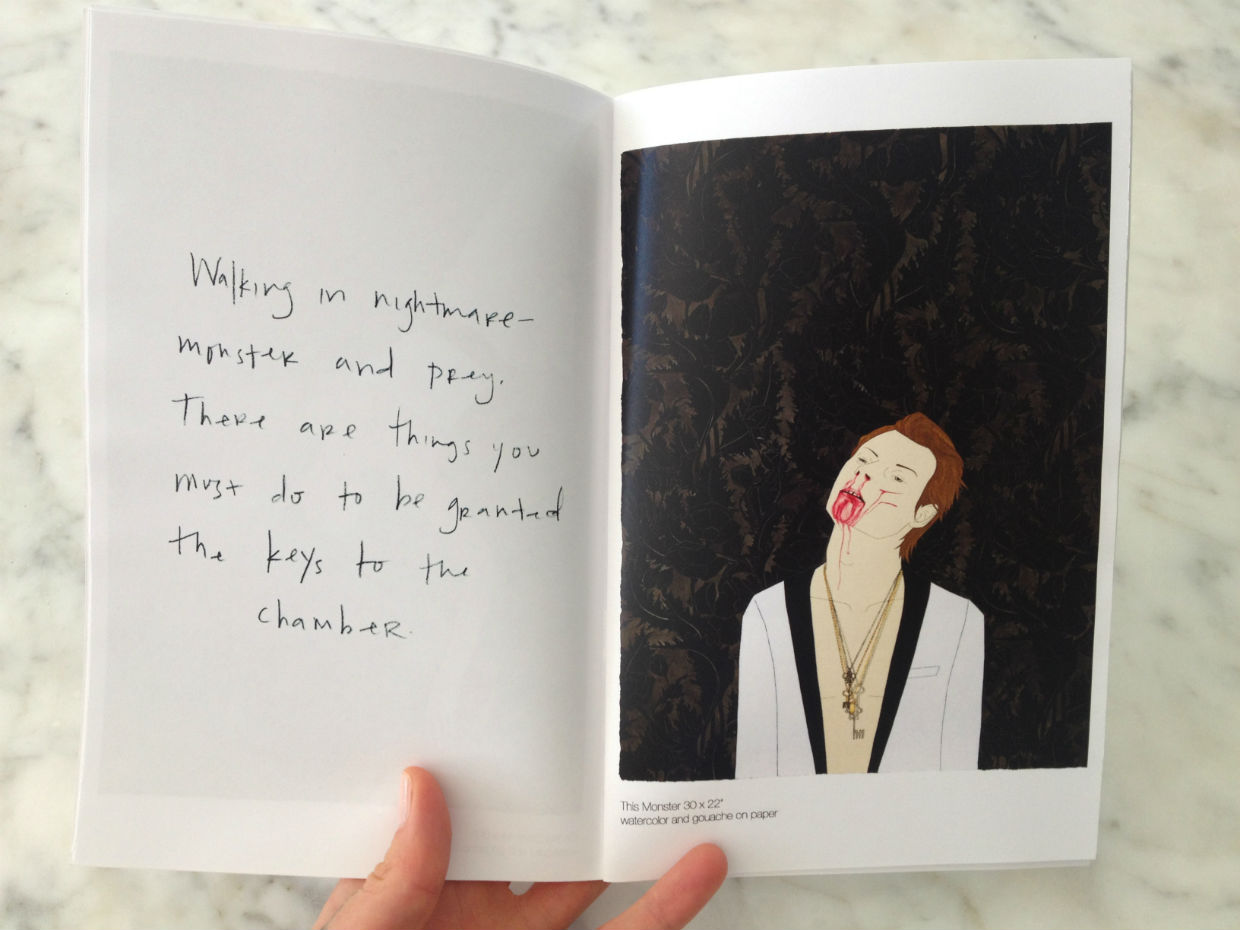 Walking in nightmare–
monster and prey.
There are things you
must do to be granted
the keys to the
chamber.
This Monster 30 x 22"
watercolor and gouache on paper